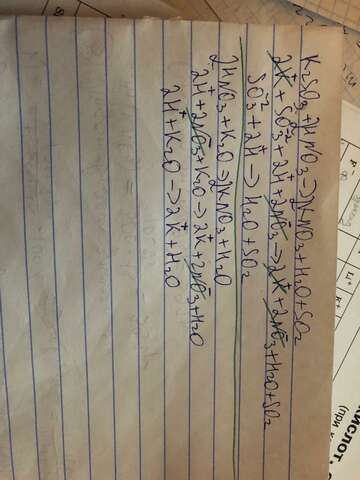 K₂SO₃+2HNO₃→2KNO₃+H₂O+SO₂
2K⁺+SO₃²⁻+2H⁺+2NO₃⁻→2K⁺+2NO₃⁻+H₂O+SO₂
SO₃²⁻+2H⁺→H₂O+SO₂
2HNO₃+K₂O→2KNO₃+H₂O
2H⁺+2NO₃⁻+K₂O→2K⁺+2NO₃⁻+H₂O
2H⁺+K₂O→2K⁺+H₂O